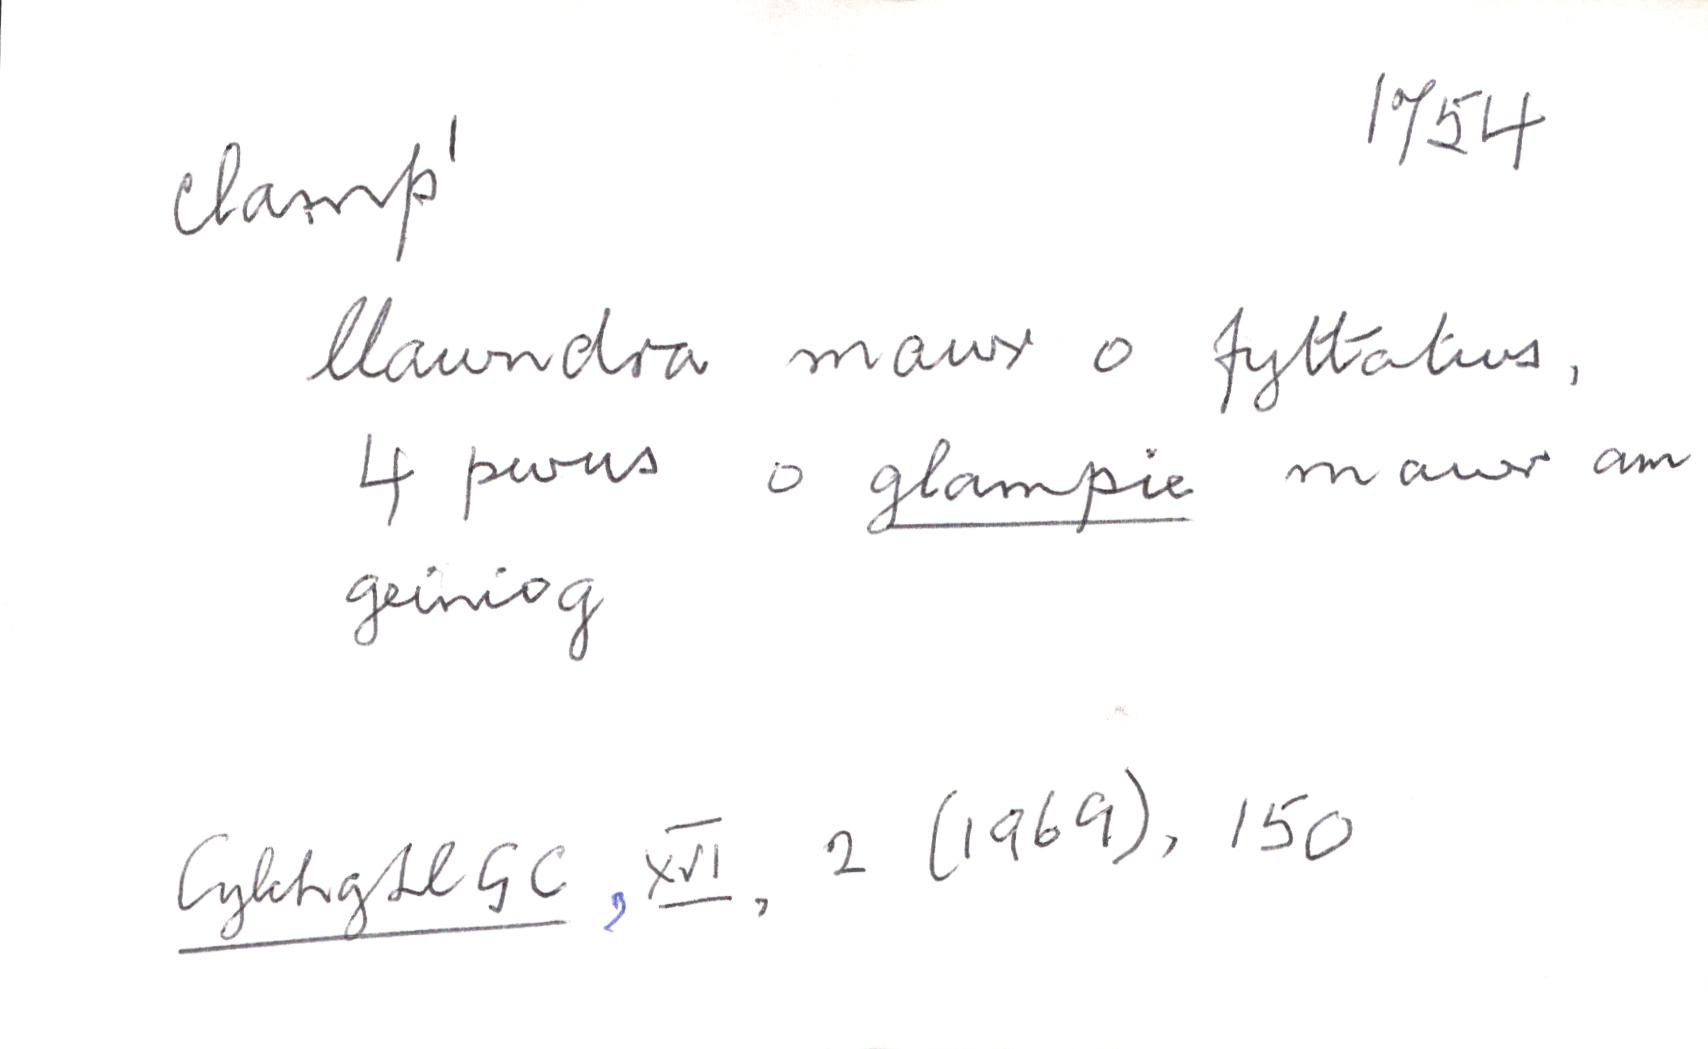 1754
clamp¹
llawndra mawr o fyttatws,
4 pwus o glampie mawr am
geiniog
CylchgLlGC, XVI, 2 (1969), 150